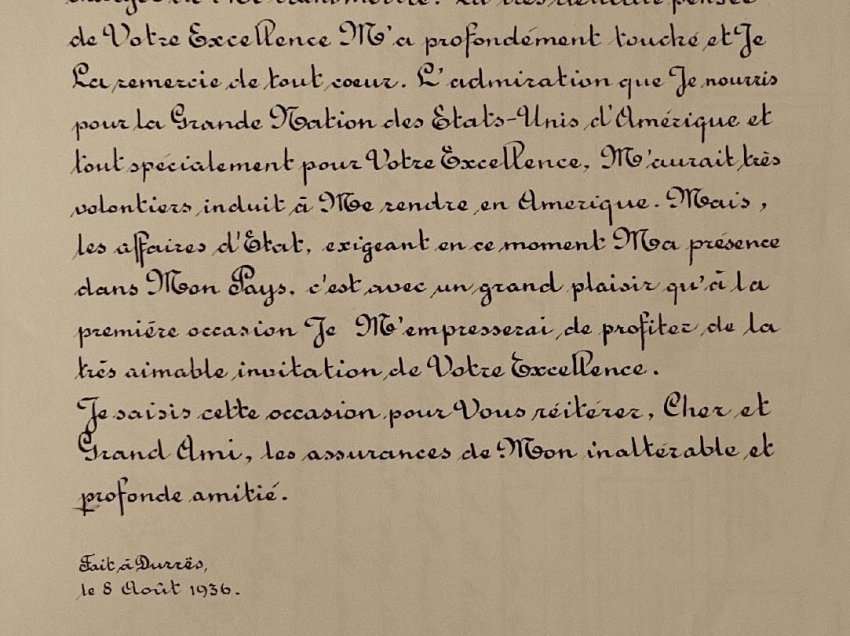 de Votre Excellence M'a profondément touché et Je
La remercie de tout coeur. L'admiration que Je nourris
pour la Grande Nation des Etats-Unis d'Amérique et
tout spécialement pour Votre Excellence, M'aurait très
volontiers induit à Me rendre en Amerique. Mais,
les affaires d'Etat, exigeant en ce moment Ma présence
dans Mon Pays, c'est avec un grand plaisir qu'à la
premiére occasion Je M'empresserai de profiter de la
trés aimable invitation de Votre Excellence.
Je saisis cette occasion pour Vous réitérer, Cher et
Grand Ami, les assurances de Mon inaltérable et
profonde amitié.
Fait à Durrës,
le 8 Août 1936.